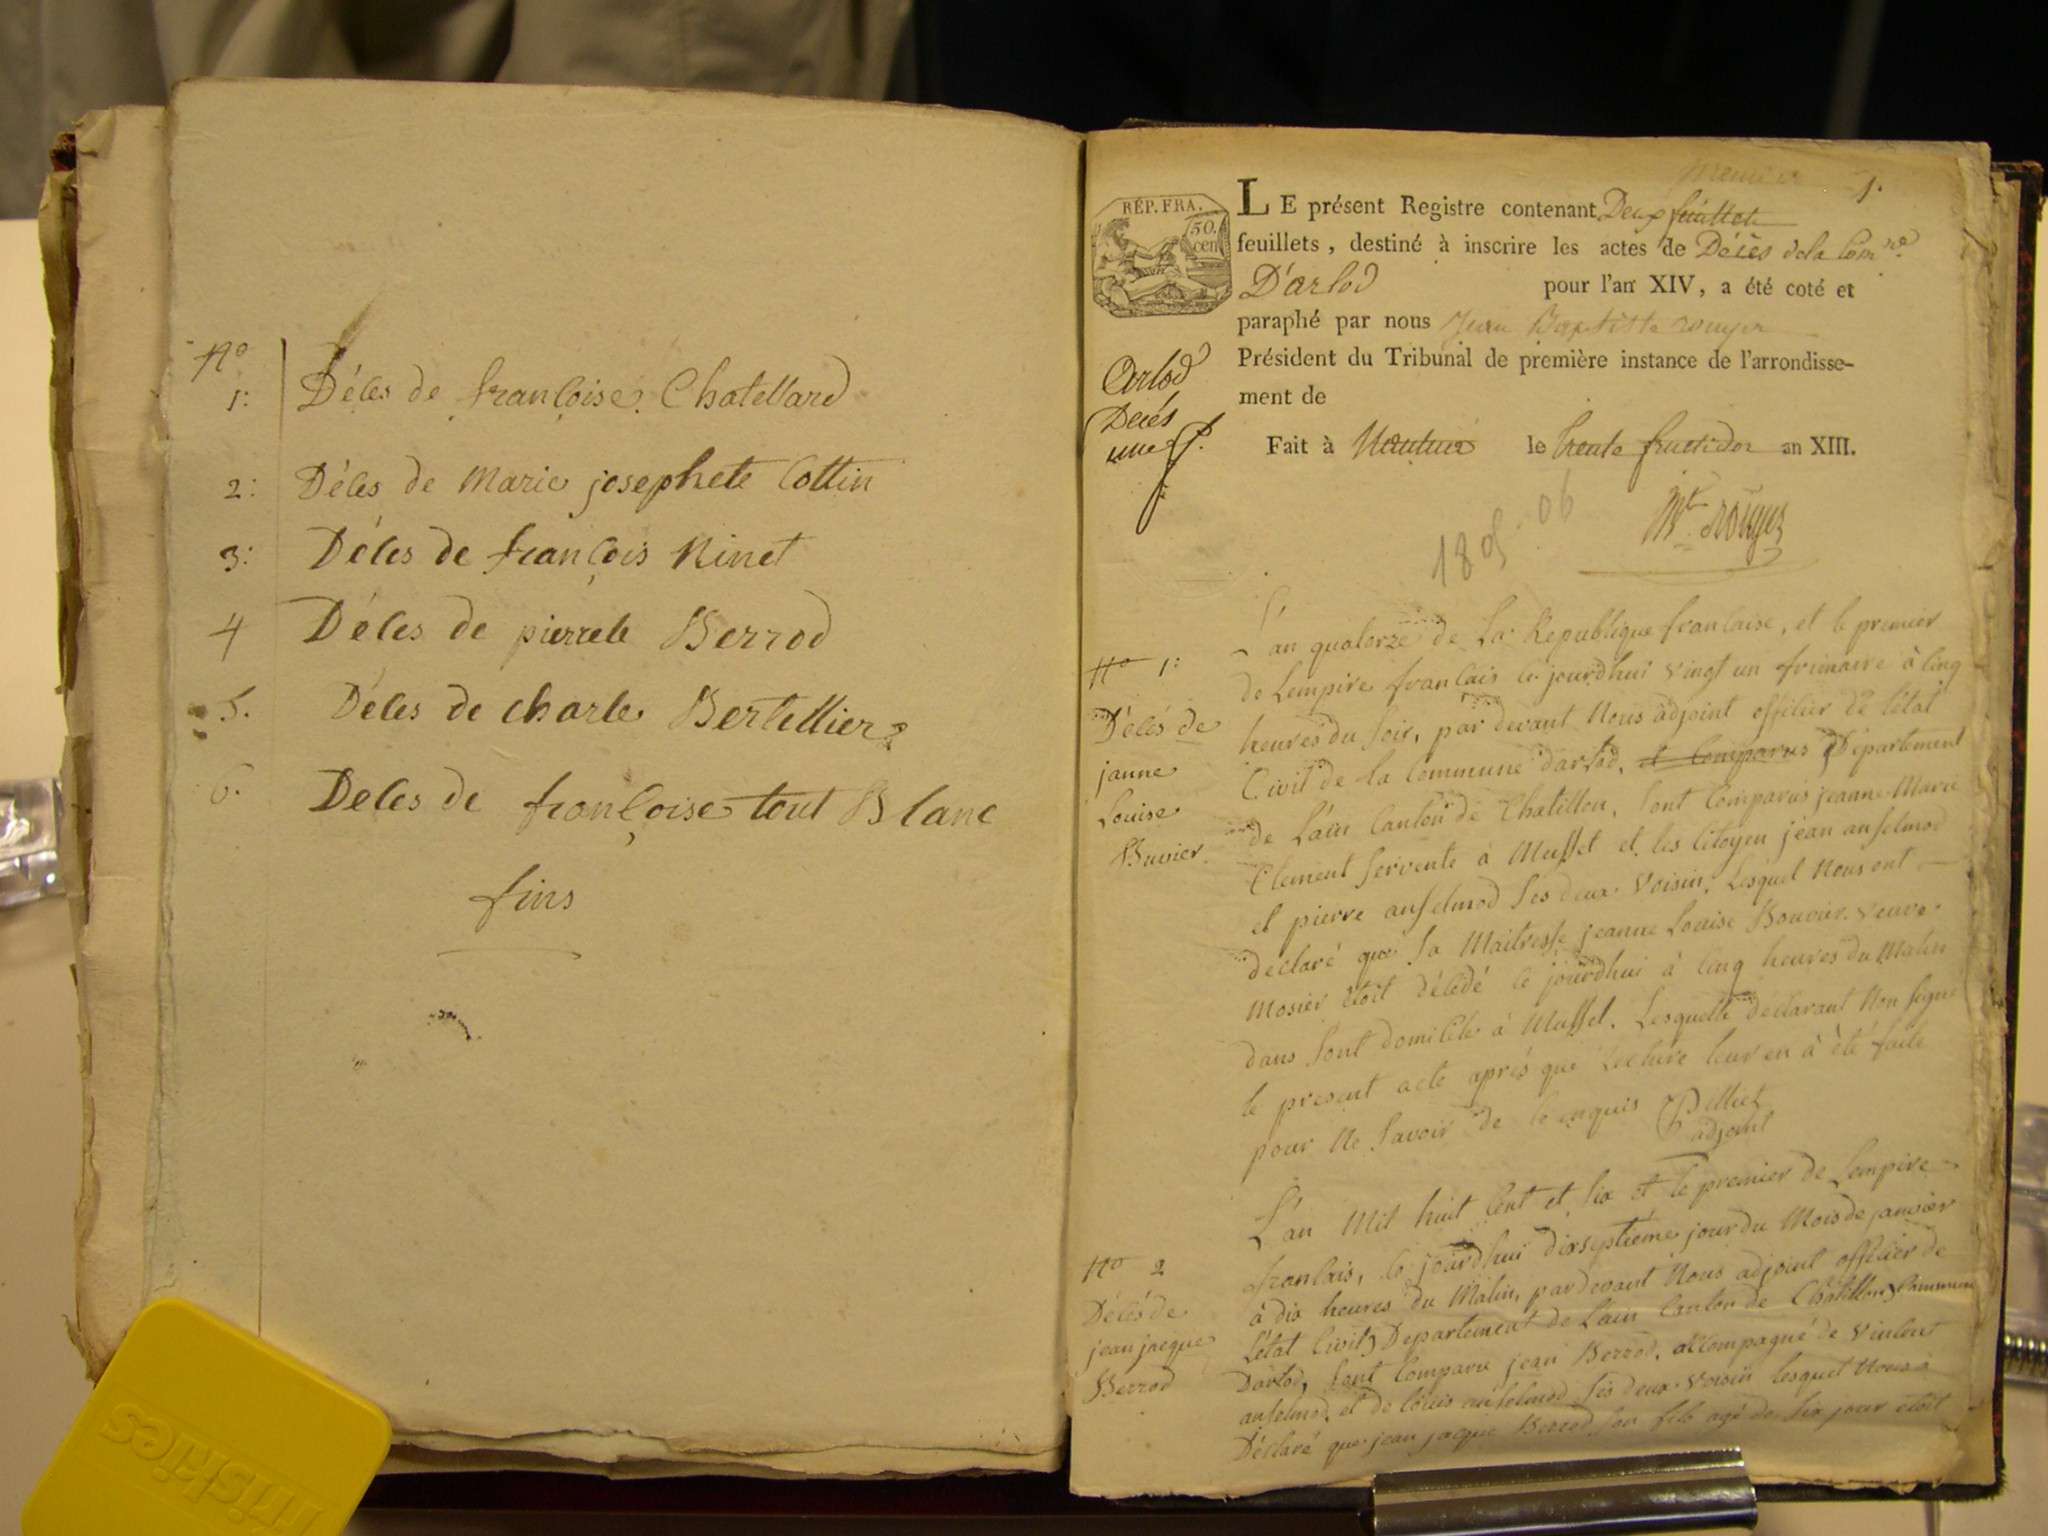 N°
1: Déces de françoise Chatellard
2: Déces de Marie josephete Cottin
3: Déces de françois Ninet
4 Déces de pierrete Berrod
5. Déces de charle Bertellier
6. Deces de françoise tout Blanc
fins
1.
RÉP. FRA.
50.
cen
LE présent Registre contenant Deux feuillets
feuillets, destiné à inscrire les actes de Décès de la Com.ne
D'arlod pour l'an XIV, a été coté et
paraphé par nous Jean Baptiste rouyer
Président du Tribunal de première instance de l'arrondisse-
ment de
Fait à Nantua le trente fructidor an XIII.
Arlod
Decés
une
1805-06
Bte rouyer
N° 1:
Décés de
janne
Louise
Buvier.
L'an quatorze de La Republique francaise, et le premier
de Lempire francais ce jourdhui vingt un frimaire à cinq
heures du soir, par devant Nous adjoint officier de l'état
Civil de la Commune darlod, et Comparus Département
de Lain Canton de Chatillon, sont Comparus jeanne Marie
Clement servente à Mussel et les citoyen jean anselmod
et pierre anselmod ses deux voisin, Lesquel Nous ont
déclaré que sa Maitresse jeanne Louise Bouvier veuve
Mosier étoit décédé ce jourdhui à cinq heures du Matin
dans sont domicile à Mussel, Lesquelle déclarant Non signé
le present acte aprés que Lecture leur en à été faite
pour Ne savoir de ce enquis
adjoint
N° 2
Décés de
jean jacque
Berrod
L'an Mil huit Cent et six et le premier de Lempire
francais, ce jourdhui dixseptiéme jour du Mois de janvier
à dix heures du Matin, pardevant Nous adjoint officier de
L'état Civil Departement de Lain Canton de Chatillon Commune
Darlod, sont Comparu jean Berrod, accompagné de vincent
anselmod, et de louis anselmod ses deux voisin lesquel Nous à
Déclaré que jean jacque Berrod son fils agé de six jour étoit
friskies